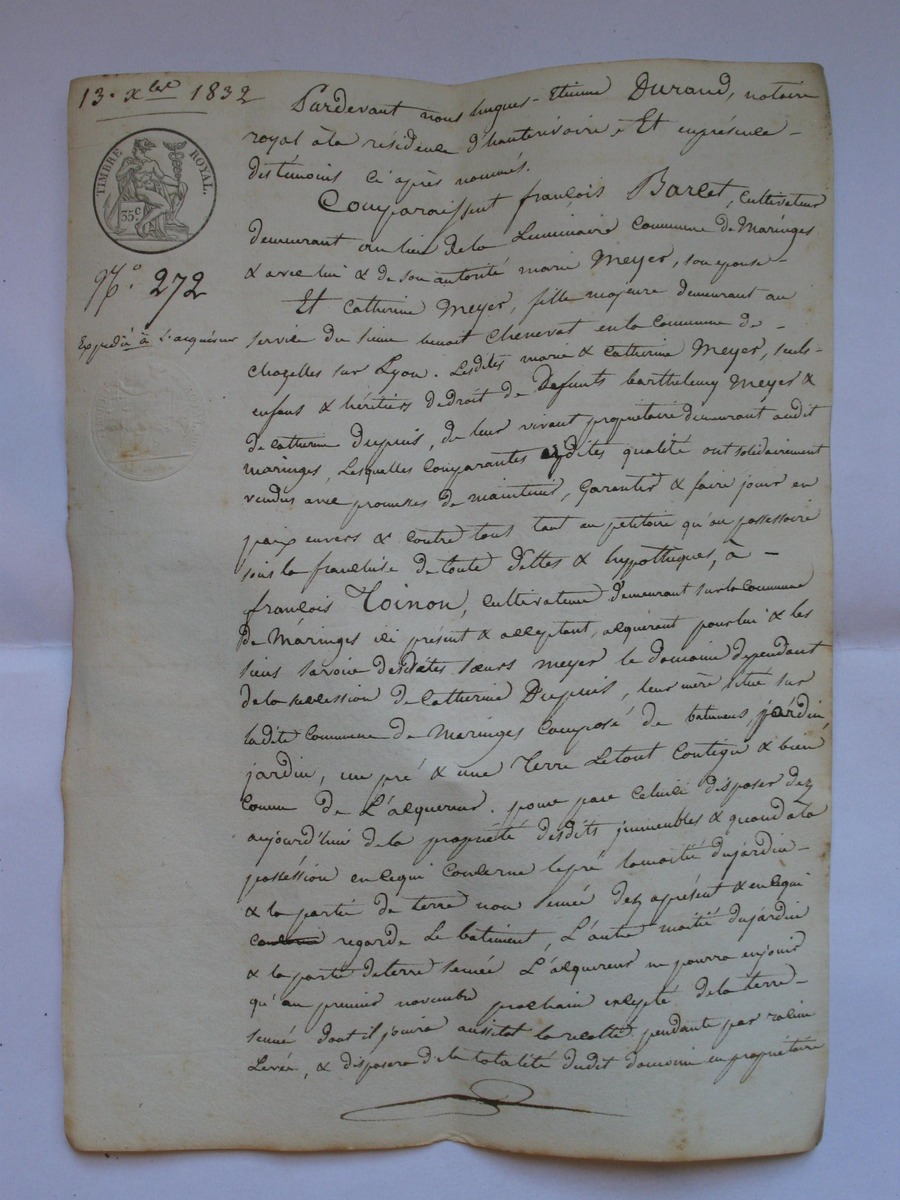 13. xbre 1832
TIMBRE ROYAL.
35c
No. 272
Expedié à L'acquéreur
Pardevant nous hugues-Etienne Durand, notaire
royal à la residence d'hauterivoire, Et en présence
des témoins ci après nommés.
Comparaissent françois Barcet, cultivateur
demeurant au lieu de la Luminaire commune de Maringes
& avec lui & de son autorité marie Meyer, son epouse
Et Catherine Meyer, fille majeure demeurant au
service du sieur benoit chenevat en la commune de
chazelles sur Lyon. Lesdites marie & Catherine Meyer, seuls
enfans & héritiers de droit de defunts barthelemy Meyer &
de Catherine Dupuis, de leur vivant propriétaire demeurant audit
maringes, Lesquelles Comparantes esdites qualité ont solidairement
vendus avec promesses de maintenir, garantir & faire jouir en
paix envers & contre tous tant au petitoire qu'au possessoire
sous la franchise de toute dettes & hypotheques, à
françois Toinon, cultivateur demeurant sur la commune
de Maringes ici présent & acceptant, acquérent pour lui & les
siens savoir desdites sœurs meyer le domaine dependant
de la succession de Catherine Dupuis, leur mère situé sur
ladite Commune de Maringes Composé de batimens, jardin,
jardin, un pré & une Terre Le tout Contigu & bien
Connu de L'acquereur. pour par Celuici disposer dez
aujourd'hui de la propriété desdits immeubles & quand à la
posséssion en cequi Concerne le pré la moitié du jardin
& la partie de terre non semée dez aprésent & en cequi
regarde Le bâtiment, L'autre moitié du jardin
& la partie de terre semée L'acquereur ne pourra en jouir
qu'au premier novembre prochain excepté de la terre
semée dont il jouira aussitot la recolte pendante par racine
Levée, & disposera de la totalité dudit domaine en propriétaire